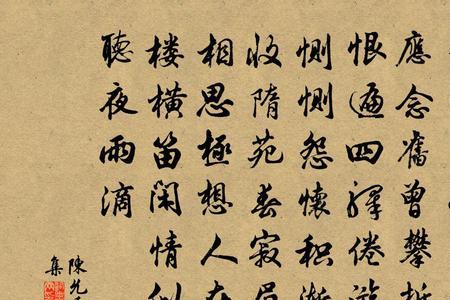 應念舊曾攀折
恨遍四驛倦游
惻惻怨懷积渐
收隋苑春寂
相思極想人在
楼横笛闲情似
聽夜雨滴
陳允
集